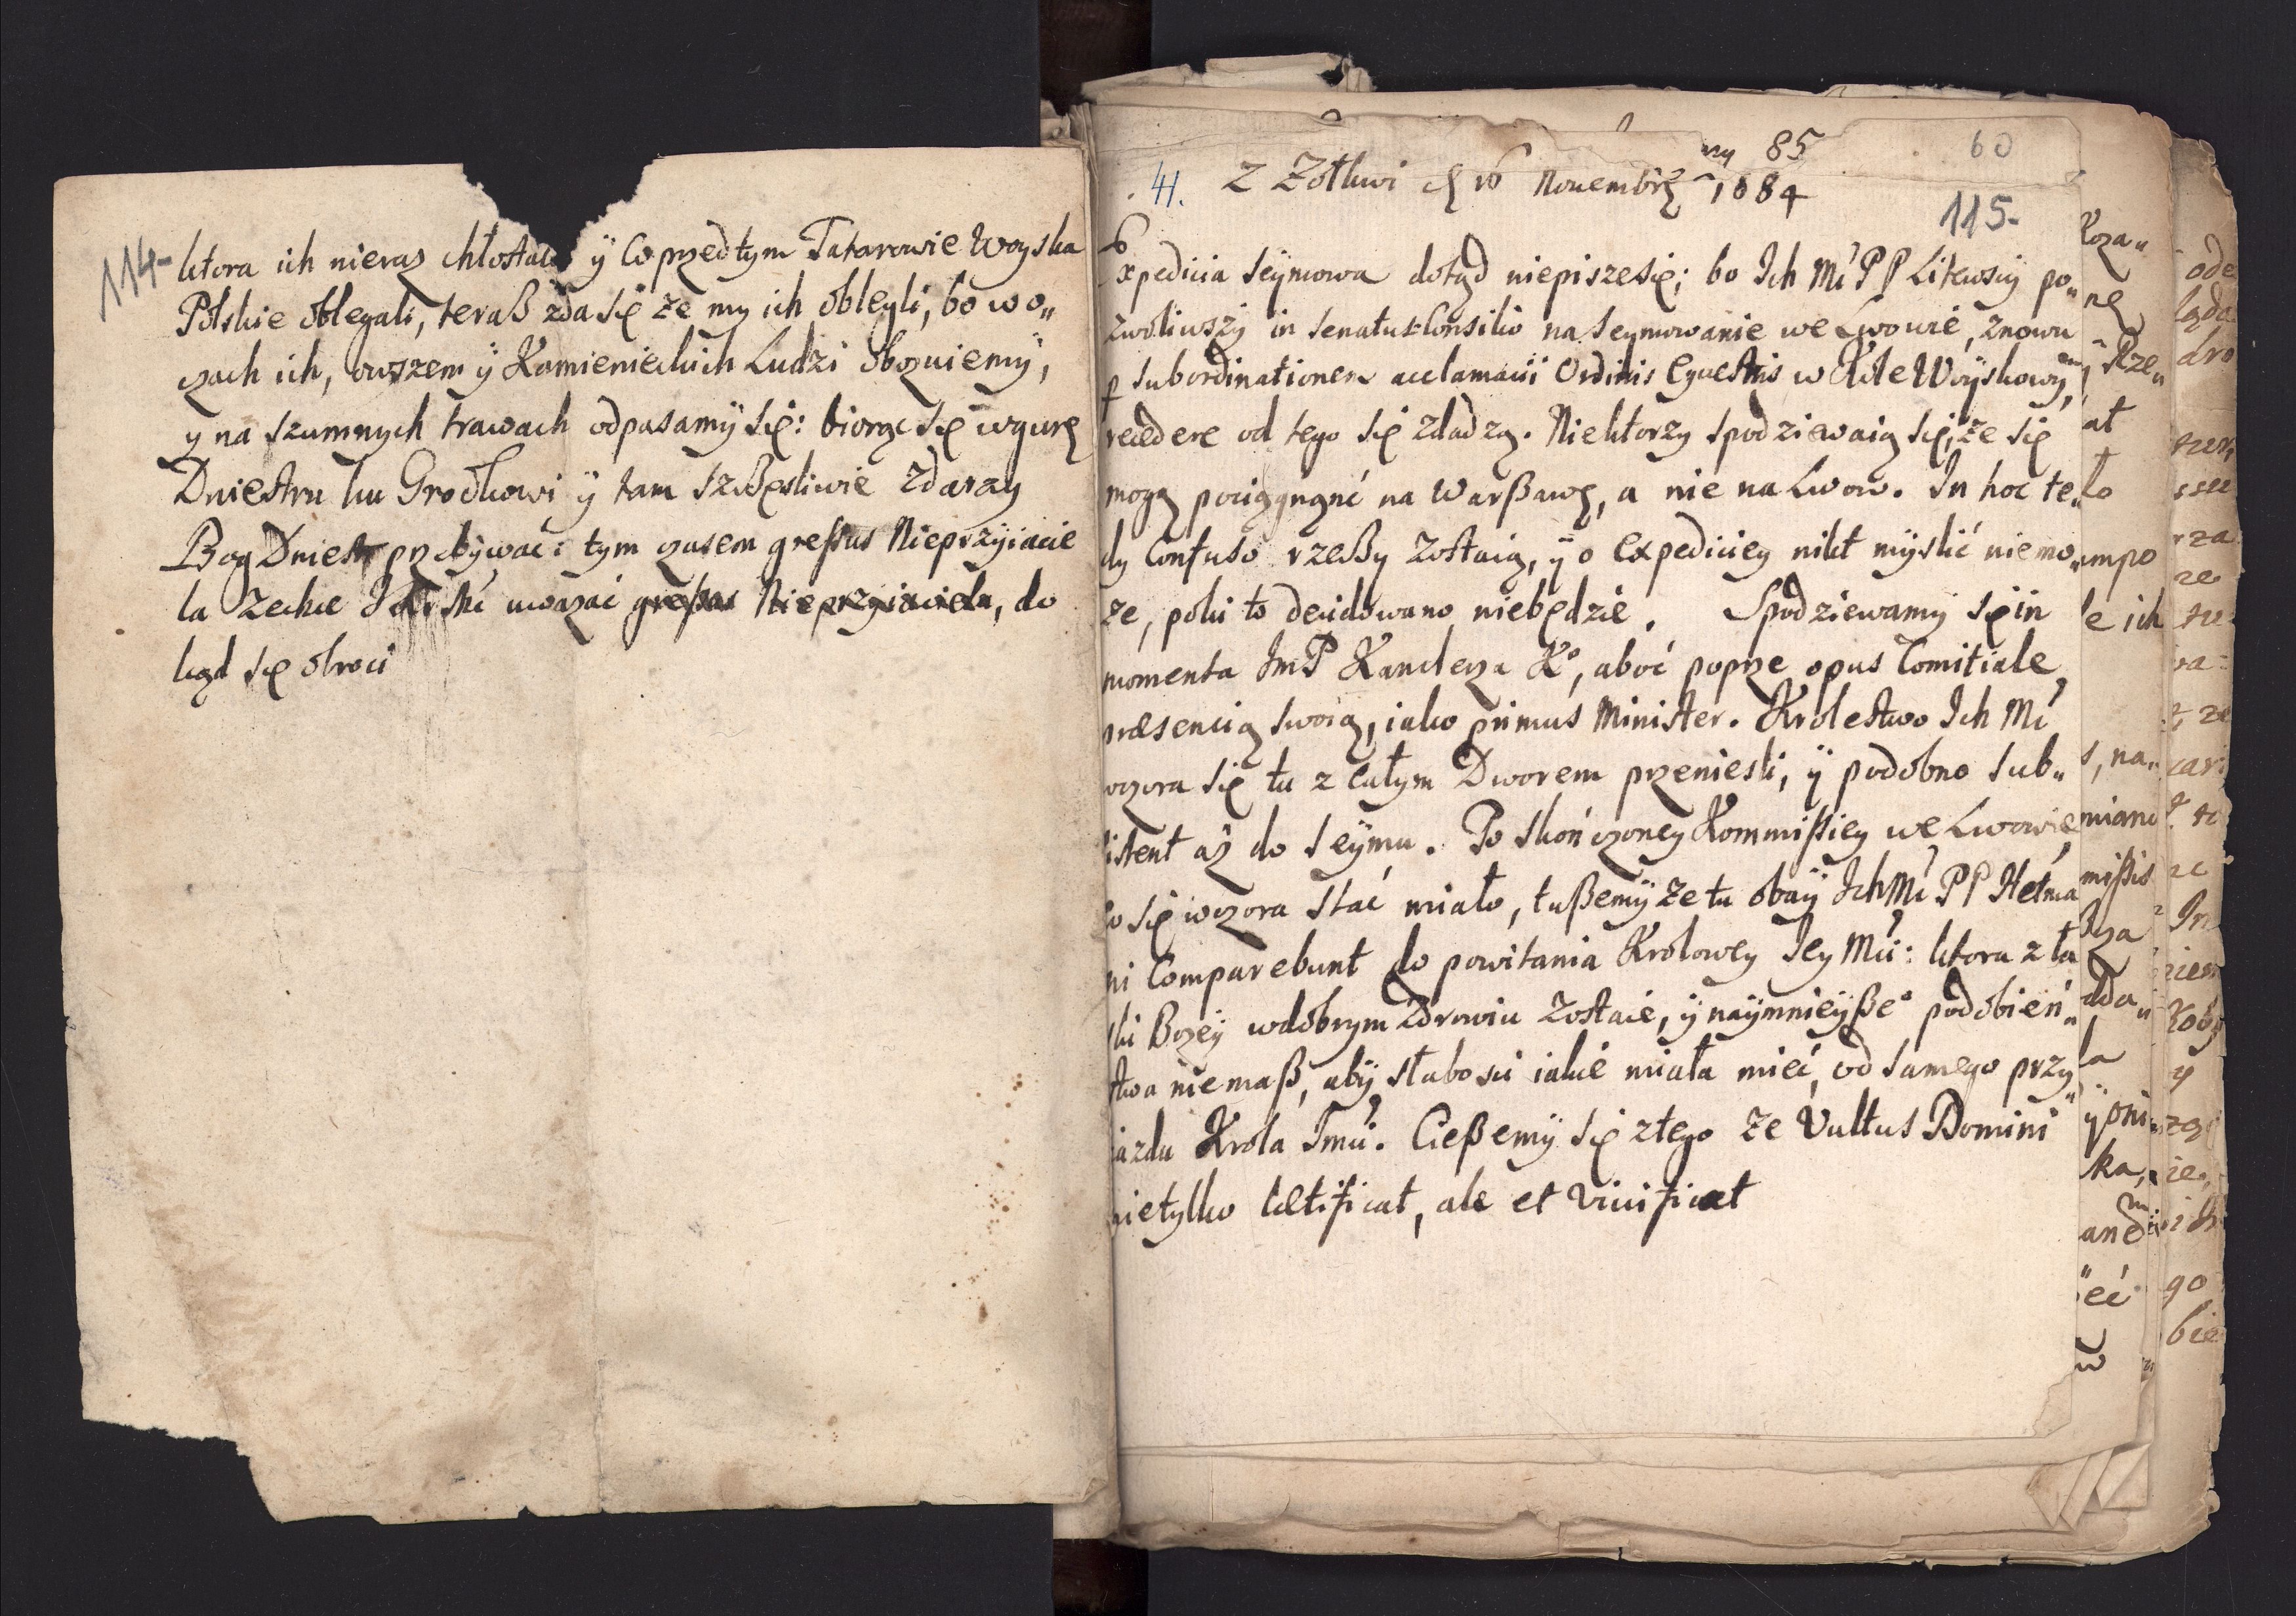 114-
ktora ich nieraz chłostała ÿ Co przedtym Tatarowie Woyska
Polskie oblegali, teraß zda się że my ich oblegli, bo w o„
czach ich, owszem ÿ Kamienieckich Ludzi obozuiemÿ,
y na szumnych trawach odpasamÿ się: biorąc się wgurę
Dniestru ku Grodkowi ÿ tam szczęsliwie zdarzy
Bog Dniestr przebÿwać: tym czasem greßus Nieprzÿiacie
la zechce uwazać greßus Nieprzyiaciela, do
kąd się obroci
41. Z Zołkwi 16 Novembris 1684
85
60
115-
Expedicia Seÿmowa dotąd niepiszesię; bo Ich Mć PP Litewscÿ po„
zwoliwszÿ in Senatus Consilio na Seymowanie we Lwowie, znowu
p subordinationem acclamacii Ordinis Equestris w Kole Woÿskowÿm,
recedere od tego się zdadzą. Niektorzy spodziewaią się, że się
mogą pociągnąć na Warßawę, a nie na Lwow. In hoc te„
dy Confuso rzeczy zostaią, ÿ o Expediciey nikt mÿslić niemo„
że, poki to decidowano niebędzie. Spodziewamÿ się in
momenta JmP Kanclerza Ko, aboć poprze opus Comitiale
præsencią swoią, iako primus Minister. Krolestwo Ich Mć
wczora się tu z całym Dworem przenieśli, ÿ podobno sub„
sistent aż do Seÿmu. Po skończoney Kommißiey we Lwowie,
co się wczora stać miało, tußemÿ że tu obaÿ Ich Mć PP Hetma
ni Comparebunt do powitania Krolowey Jey Mći: ktora z ła
ski Bozeÿ wdobrym zdrowiu zostaie, ÿ naÿmnieÿßeo podobień„
stwa niemaß, abÿ słabości iakie miała mieć, od samego przy„
iazdu Krola Jmći. Cießemÿ się ztego że Vultus Domini
nietylko lætificat, ale et vivificat
Koza„
nę
ÿ Rze„
ał
ło
mpo
le ich
s, na„
miano
mißis
ada„
ła
ÿ oni
ka,
eć
w
ode
ląda
dro
rza
ze
go
bie